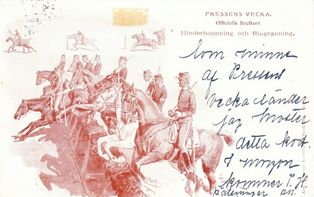 PRESSENS VECKA.
Officiella Brefkort
Hinderhoppning och Ringränning.
Som minne
af Pressens
vecka sänder
jag
detta kort.
I morgon
kommer P. H.